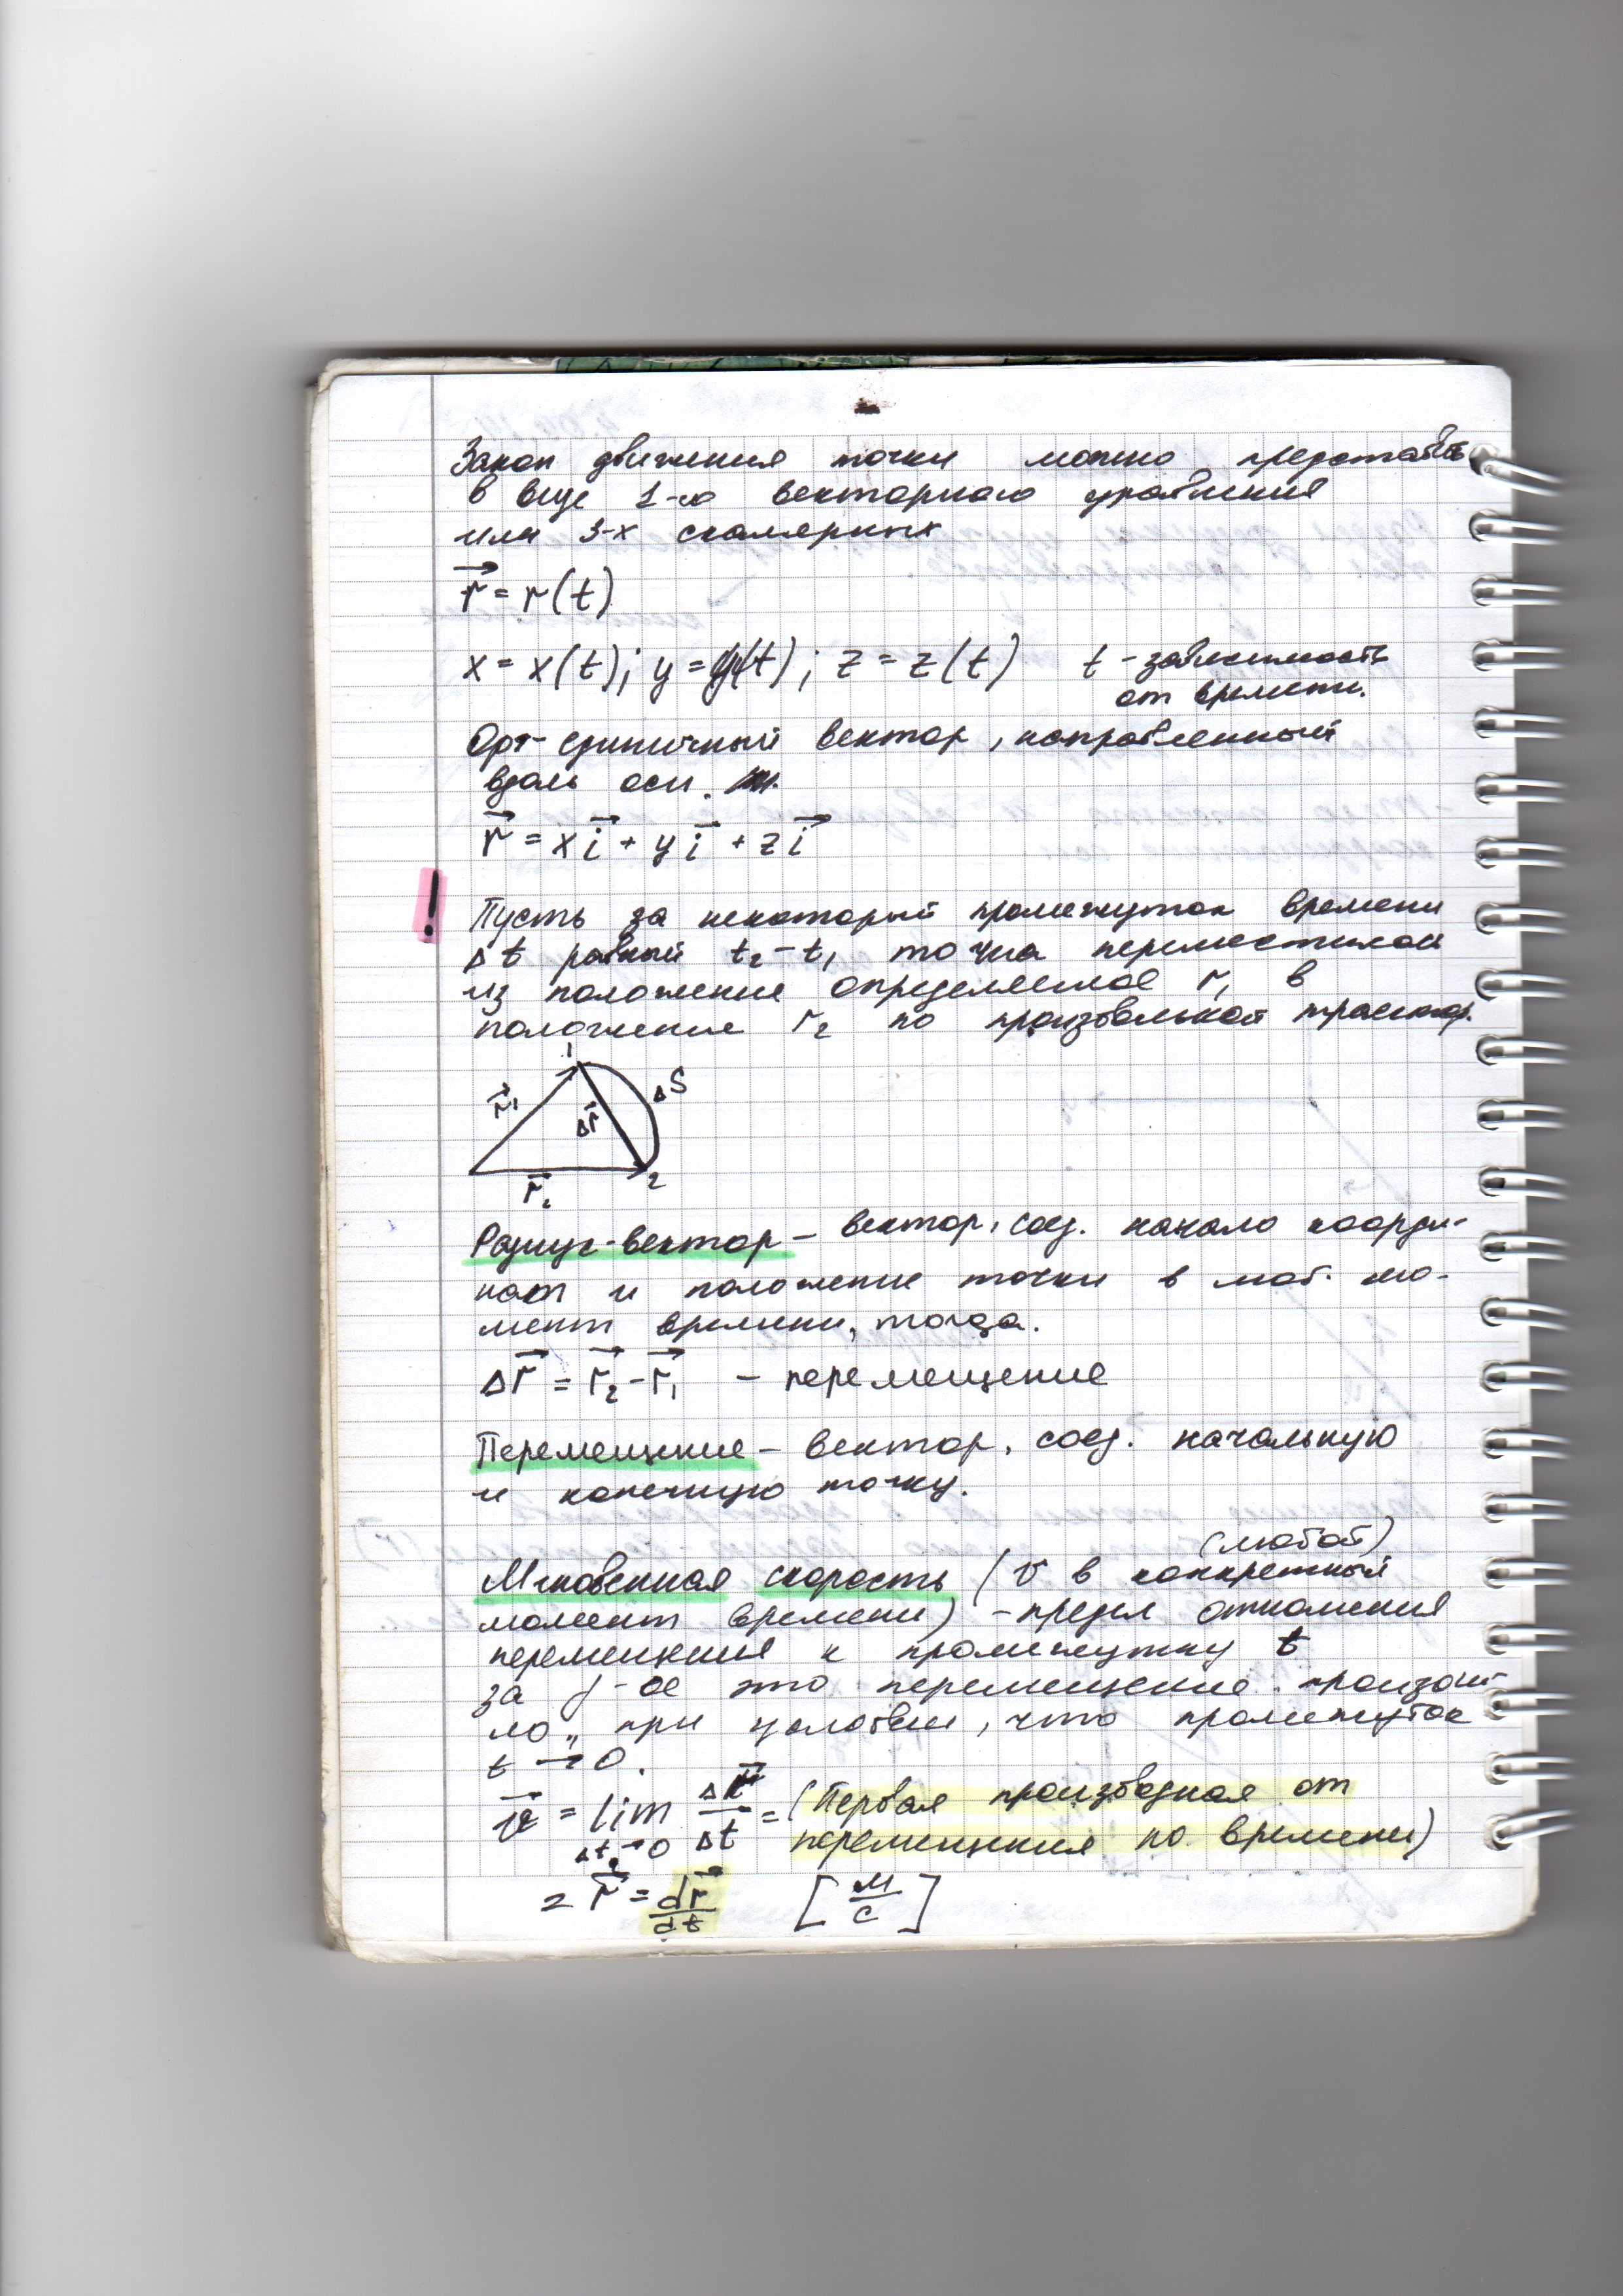 Закон движения точки можно представить
в виде 1-го векторного уравнения
или 3-х скалярных
r⃗ = r(t)
x = x(t); y = y(t); z = z(t) t - зависимость
от времени.
Орт - единичный вектор, направленный
вдоль оси.
r⃗ = x i⃗ + y i⃗ + z i⃗
! Пусть за некоторый промежуток времени
Δt равный t₂ - t₁ точка переместилась
из положение определяемое r₁ в
положение r₂ по произвольной траектор.
1
r⃗₁ Δr⃗ ΔS
r⃗₂ 2
Радиус-вектор - вектор, соед. начало коорди-
нат и положение точки в люб. мо-
мент времени, тогда.
Δr⃗ = r⃗₂ - r⃗₁ - перемещение
Перемещение - вектор, соед. начальную
и конечную точку.
(любой)
Мгновенная скорость (v в конкретный
момент времени) - предел отношения
перемещения к промежутку t
за к-ое это перемещение произош-
ло, при условии, что промежуток
t → 0.
v⃗ = lim Δr⃗/Δt = (Первая производная от
Δt→0 перемещения по времени)
= r⃗ = dr⃗/dt [м/с]